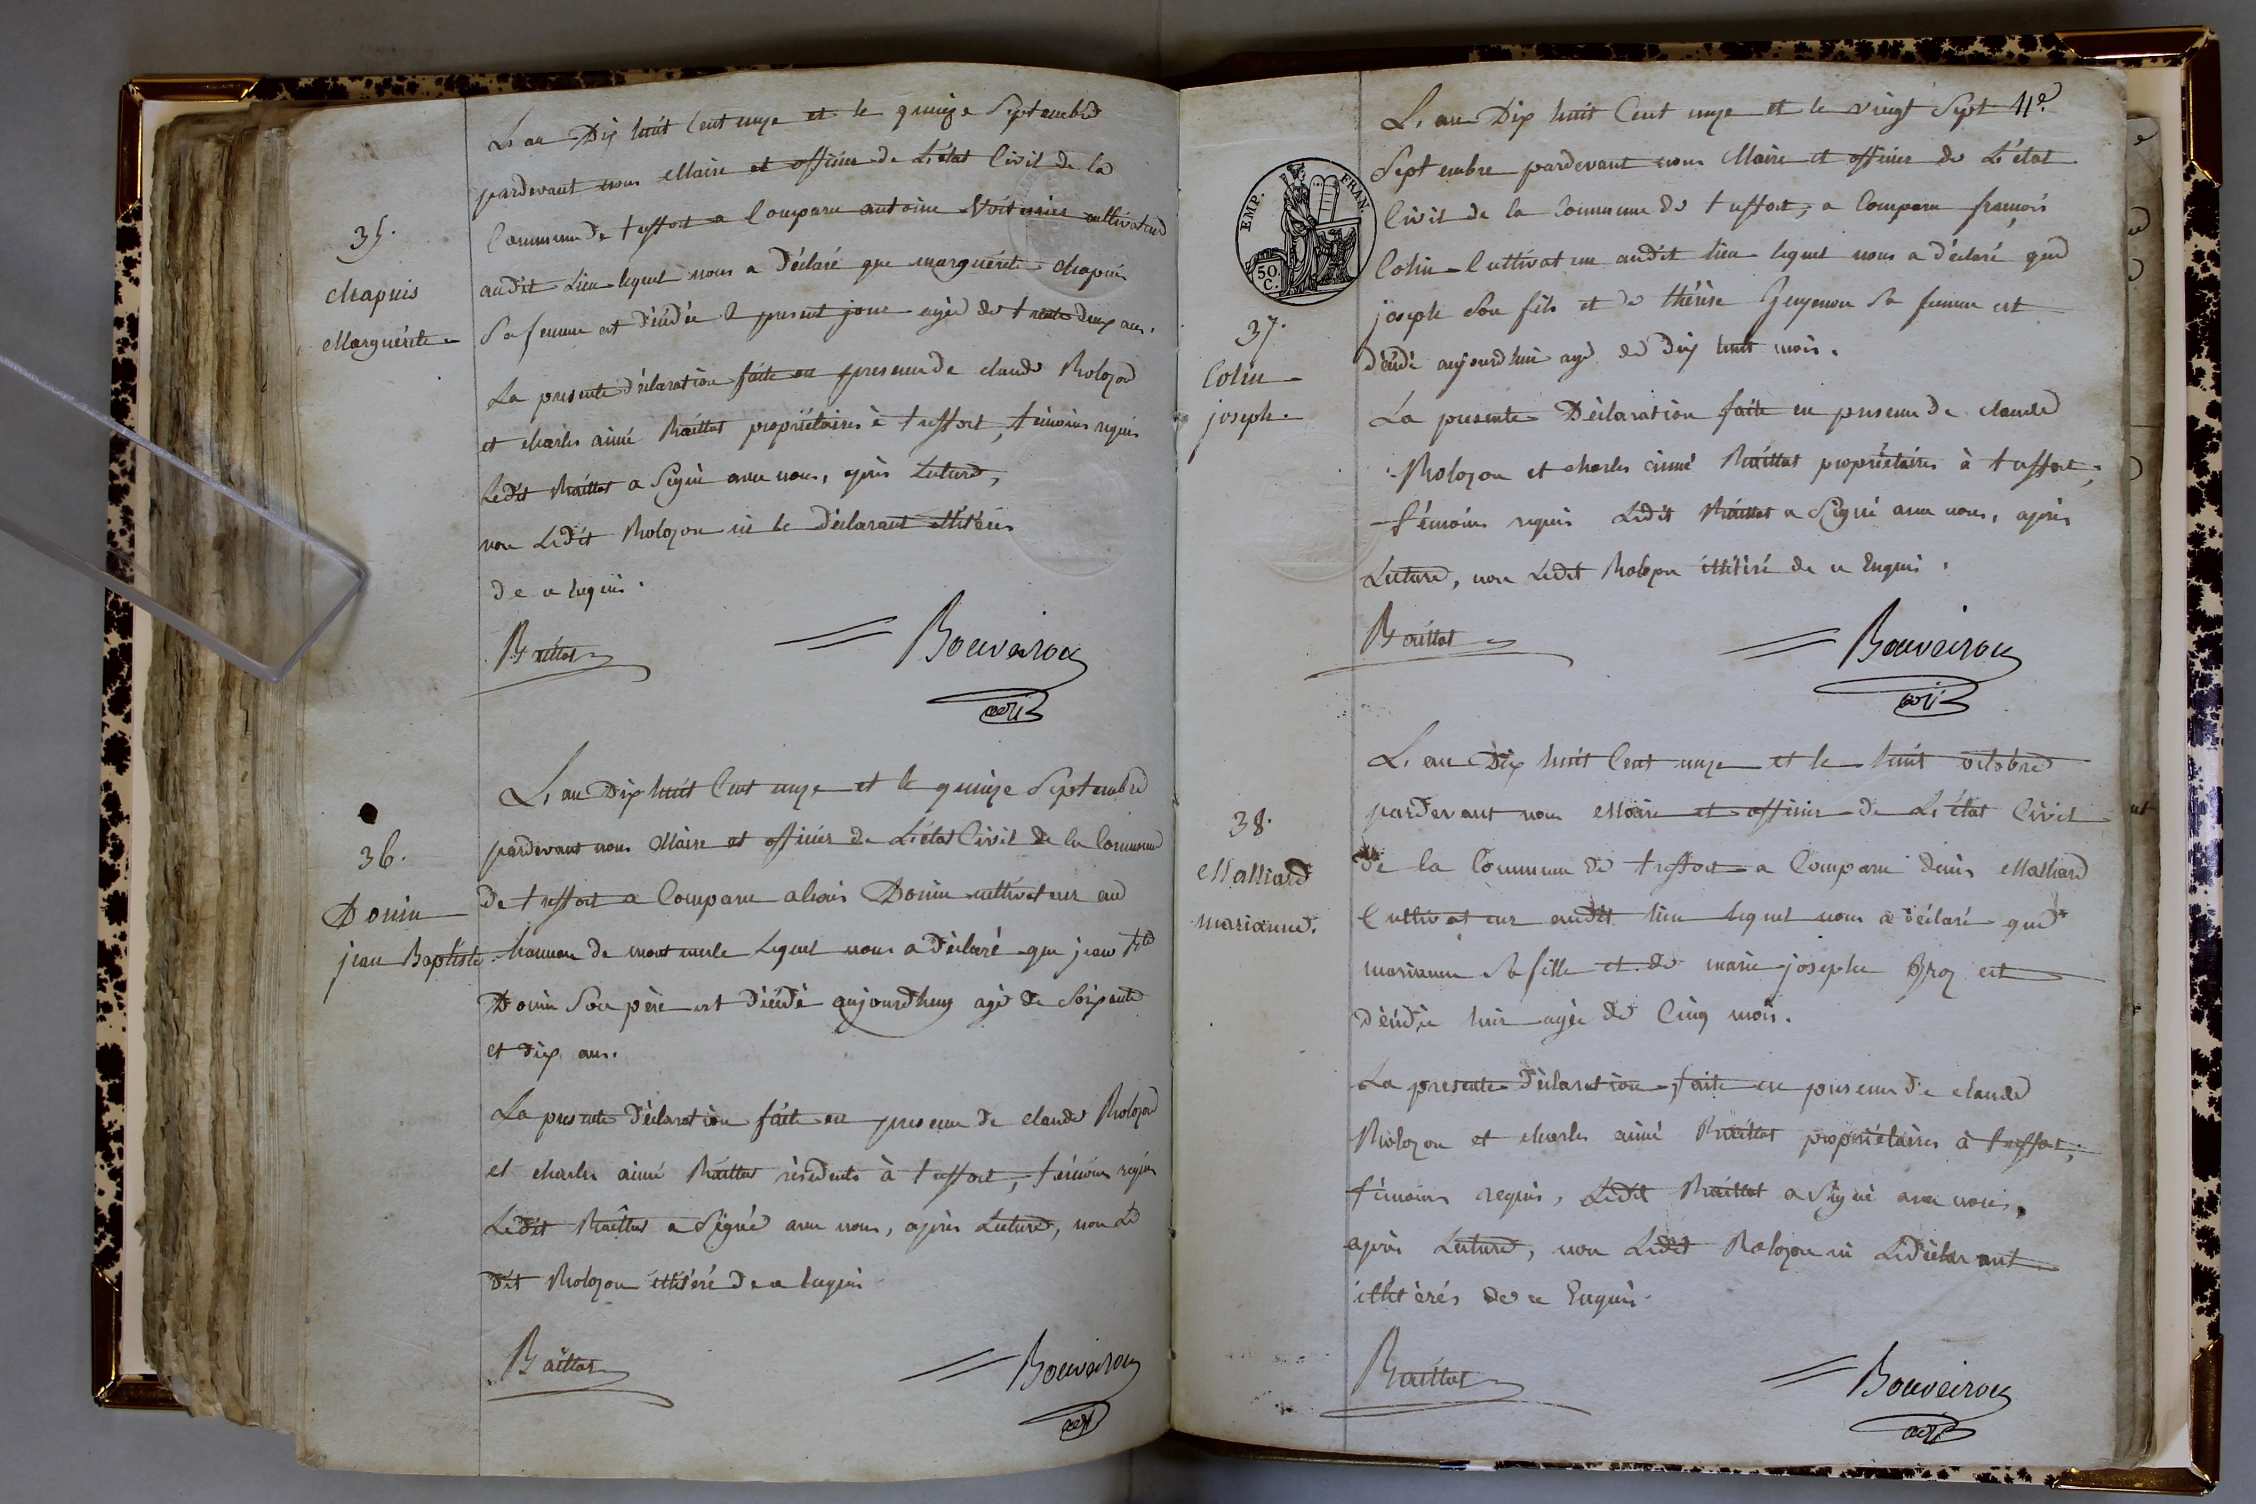 35.
Chapuis
Marguérite
L'an Dix huit Cent onze et le quinze Septembre
pardevant nous Maire et officier de L'état Civil de la
Commune de treffort a Comparu antoine Voiturier cultivateur
audit Lieu lequel nous a Déclaré que marguérite chapuis
Sa femme est décédée le présent jour agée de trente deux ans.
La presente déclaration faite en presence de claude Rolozon
et charles aimé Raillat propriétaires à treffort, témoins requis
Ledit Raillat a Signé avec nous, après Lecture,
non Ledit Rolozon ni le Déclarant illitérés
de ce Enquis.
Raillat
Bouveiron
36.
Donin
jean Baptiste
L'an Dix huit Cent onze et le quinze Septembre
pardevant nous Maire et officier de L'état Civil de la Commune
de treffort a Comparu Donin cultivateur au
hameau de mont merle Lequel nous a Déclaré que jean Bte
Donin Son père est Décédé aujourdhuy agé de Soixante
et dix ans.
La presente Déclaration faite en presence de claude Rolozon
et charles aimé Raillat résidents à treffort, témoins requis
Ledit Raillat a Signé avec nous, après Lecture, non Le
dit Rolozon illitéré de ce Enquis
Raillat
Bouveiron
EMP. FRAN.
50.
C.
37.
Colin
joseph.
L'an Dix huit Cent onze et le vingt Sept
Septembre pardevant nous Maire et officier de L'état
Civil de la Commune de treffort, a Comparu françois
Colin Cultivateur audit lieu lequel nous a déclaré que
joseph Son fils et de thérèse Sa femme est
décédé aujourdhui agé de dix huit mois.
La presente Déclaration faite en presence de claude
Rolozon et charles aimé Raillat propriétaires à treffort,
témoins requis Ledit Raillat a Signé avec nous, après
Lecture, non Ledit Rolozon illitéré de ce Enquis.
Raillat
Bouveiron
38.
Malliard
marianne.
L'an Dix huit Cent onze et le huit octobre
pardevant nous Maire et officier de L'état Civil
de la Commune de treffort a Comparu denis Malliard
Cultivateur audit lieu lequel nous a déclaré que
marianne Sa fille et de marie josephe Broz est
décédée hier agée de Cinq mois.
La presente Déclaration faite en presence de claude
Rolozon et charles aimé Raillat propriétaires à treffort,
témoins requis, Ledit Raillat a Signé avec nous,
après Lecture, non Ledit Rolozon ni Le déclarant
illitérés de ce Enquis.
Raillat
Bouveiron